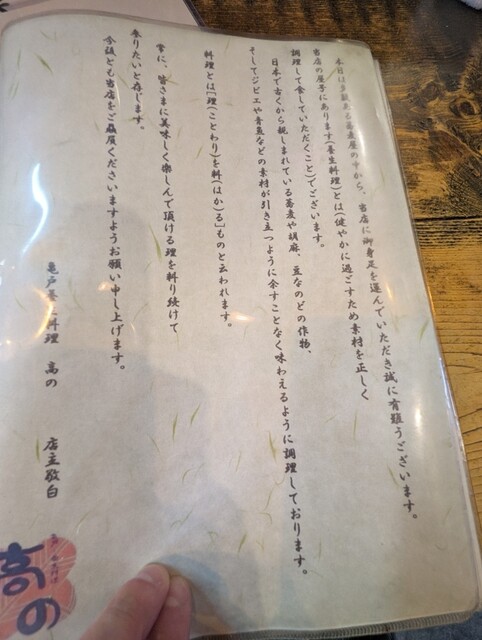 本日は多数ある蕎麦屋の中から、当店に御身足を運んでいただき誠に有難うございます。
当店の屋号にあります(養生料理)とは(健やかに過ごすため素材を正しく
調理して食していただくこと)でございます。
日本で古くから親しまれている蕎麦や胡麻、豆などの作物、
そしてジビエや青魚などの素材が引き立つように余すことなく味わえるように調理しております。
料理とは[理(ことわり)を料(はか)る]ものと云われます。
常に、皆さまに美味しく楽しんで頂ける理を料り続けて
参りたいと存じます。
今後とも当店をご贔屓くださいますようお願い申し上げます。
亀戸養生料理 高の 店主敬白
高の